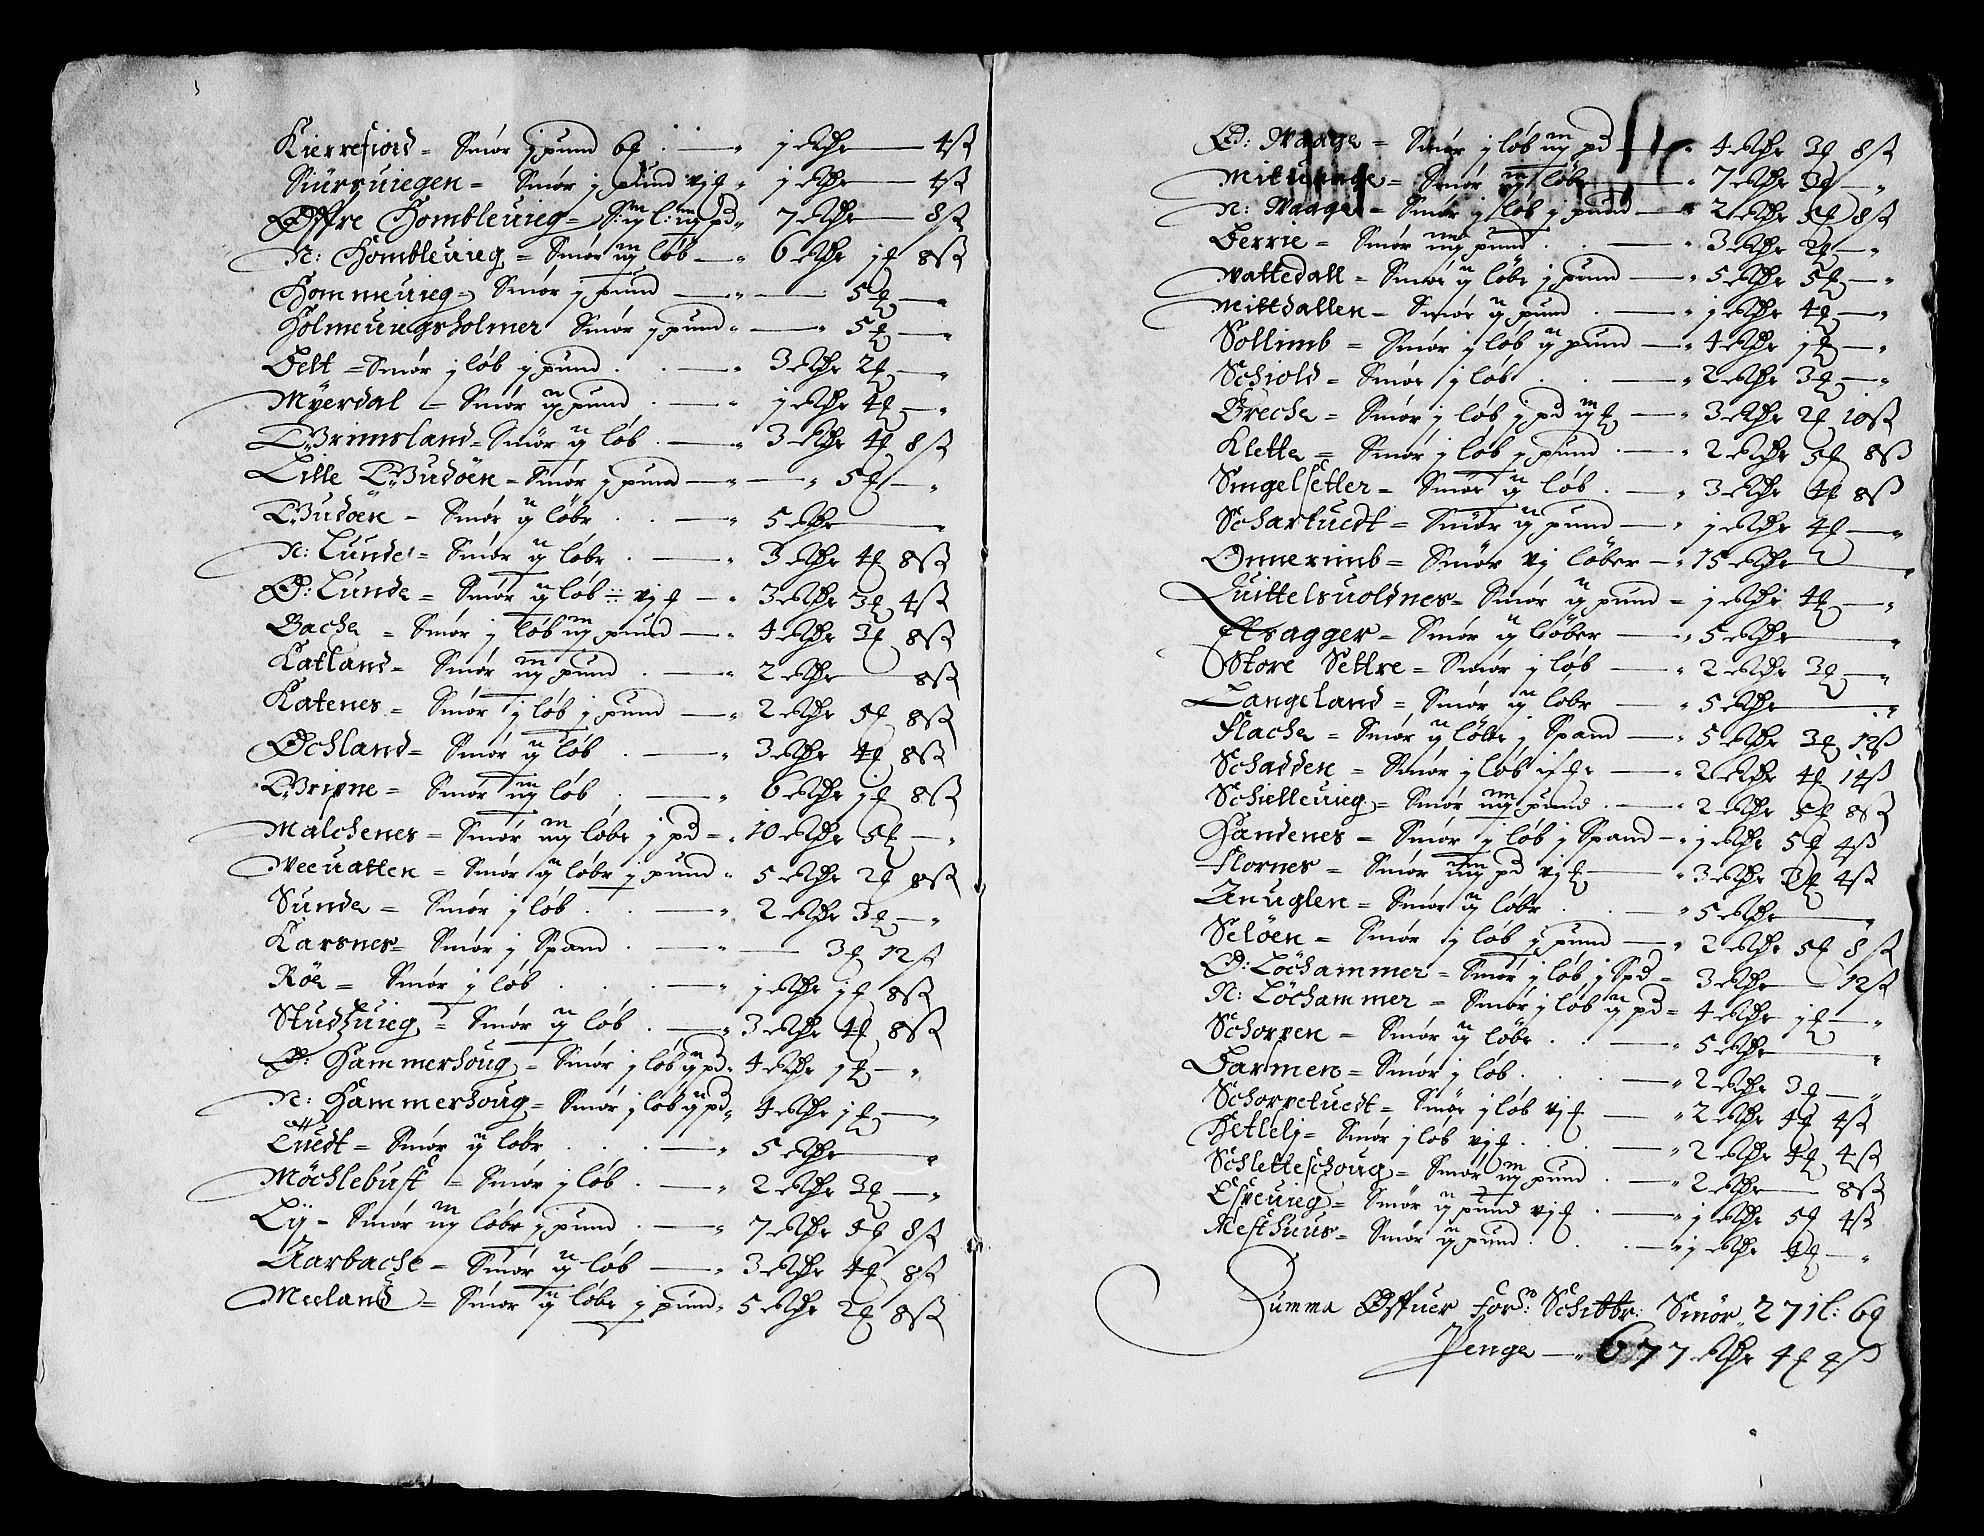 Kierrefiord = Smør j pund 6 ℔ . — " j Rdr — 4 ß
Siürruiegen = Smør j pund vj ℔ " j Rdr — 4 ß
Øffre Hombleuieg = S: iij l: iij pd " 7 Rdr — 8 ß
N: Hombleuieg = Smør iij løb — " 6 Rdr j ℔ 8 ß
Hommeuieg = Smør j pund — " — 5 ℔ — "
Holmeuigsholmer Smør j pund " — " 5 ℔ — "
Delt = Smør j løb j pund . . — " 3 Rdr 2 ℔ — "
Myerdal = Smør ij pund . — " j Rdr 4 ℔ — "
Grimsland = Smør ij løb . — " 3 Rdr 4 ℔ 8 ß
Lille Gudøen = Smør j pund — " — " 5 ℔ — "
Gudøen = Smør ij løbr . . — " 5 Rdr — "
N: Lunde = Smør ij løbr . — " 3 Rdr 4 ℔ 8 ß
Ø: Lunde = Smør ij løb vj ℔ — " 3 Rdr 3 ℔ 4 ß
Bache = Smør j løb iij pund — " 4 Rdr 3 ℔ 8 ß
Katland = Smør iij pund . — " 2 Rdr — 8 ß
Katenes = Smør j løb j pund — " 2 Rdr 5 ℔ 8 ß
Øchland = Smør ij løb . — " 3 Rdr 4 ℔ 8 ß
Gripne = Smør iij løb . — " 6 Rdr j ℔ 8 ß
Malchenes = Smør iiij løbr j pd = " 10 Rdr 5 ℔ — "
Veeuatten = Smør ij løbr j pund " 5 Rdr 2 ℔ 8 ß
Sunde = Smør j løb . . — " 2 Rdr 3 ℔ — "
Karsnes = Smør j Spand . — " — 3 ℔ 12 ß
Röe = Smør j løb . . . — " j Rdr j ℔ 8 ß
Studzuieg = Smør ij løb . — " 3 Rdr 4 ℔ 8 ß
Ø: Hammerhoug = Smør j løb ij pd " 4 Rdr j ℔ — "
N: Hammerhoug = Smør j løb ij pd " 4 Rdr j ℔ — "
Tuedt = Smør ij løbr . . . — " 5 Rdr — "
Möchlebust = Smør j løb . — " 2 Rdr 3 ℔ — "
Lij = Smør iij løbr j pund . — " 7 Rdr 4 ℔ 8 ß
Aarbache = Smør ij løb — " 3 Rdr 4 ℔ 8 ß
Meeland = Smør ij løbr j pund " 5 Rdr 2 ℔ 8 ß
Ø: Waage = Smør j løb iij pd — " 4 Rdr 3 ℔ 8 ß
Mituaage = Smør iij løbr — " 7 Rdr 3 ℔ — "
N: Waage = Smør j løb j pund — " 2 Rdr 5 ℔ 8 ß
Ferrie = Smør iiij pund . . — " 3 Rdr 2 ℔ — "
Vattedall = Smør ij løbr j pund — " 5 Rdr 5 ℔ — "
Mittdallen = Smør ij pund . — " j Rdr 4 ℔ — "
Sollimb = Smør j løb ij pund — " 4 Rdr j ℔ — "
Schiold = Smør j løb . . — " 2 Rdr 3 ℔ — "
Breche = Smør j løb j pd iij ℔ — " 3 Rdr 2 ℔ 10 ß
Klette = Smør j løb j pund . — " 2 Rdr 5 ℔ 8 ß
Singelsetter = Smør ij løb . — " 3 Rdr 4 ℔ 8 ß
Schartuedt = Smør ij pund — " j Rdr 4 ℔ — "
Onnerimb = Smør vj löber — " 15 Rdr — "
Quittelsuoldnes = Smør ij pund = j Rdr 4 ℔ — "
Elsagger = Smør ij löber — " 5 Rdr — "
Store Settre = Smør j løb — " 2 Rdr 3 ℔ — "
Langeland = Smør ij løbr — " 5 Rdr — "
Flache = Smør ij løbr j Spand — " 5 Rdr 3 ℔ 12 ß
Schadden = Smør j løb — " 2 Rdr 4 ℔ 14 ß
Schielleuieg = Smør iiij pund . — " 2 Rdr 5 ℔ 8 ß
Handenes = Smør j løb j Spand — " j Rdr 5 ℔ 4 ß
Flornes = Smør iiij pd vj ℔ — " 3 Rdr 3 ℔ 4 ß
Anuglen = Smør ij løbr . . — " 5 Rdr — "
Seløen = Smør j løb j pund — " 2 Rdr 5 ℔ 8 ß
Ø: Löchammer = Smør j løb j Spd = 3 Rdr — 12 ß
N: Löchammer = Smør j løb ij pd = 4 Rdr j ℔ — "
Schorpen = Smør ij løbr . . — " 5 Rdr — "
Farmen = Smør j løb . . . — " 2 Rdr 3 ℔ — "
Schorpetuedt = Smør j løb vj ℔ — " 2 Rdr 4 ℔ 4 ß
Hetlelj = Smør j løb vj ℔ . . — " 2 Rdr 4 ℔ 4 ß
Schletteschoug = Smør iij pund . — " 2 Rdr — 8 ß
Espeuieg = Smør ij pund vj ℔ . — " j Rdr 5 ℔ 4 ß
Mesthuus = Smør ij pund . . . — " j Rdr 4 ℔ — "
Summa Øffuer ford: Schibbr: Smør " 271 l: 6 ℔
Penge — " 677 Rdr 4 ℔ 4 ß